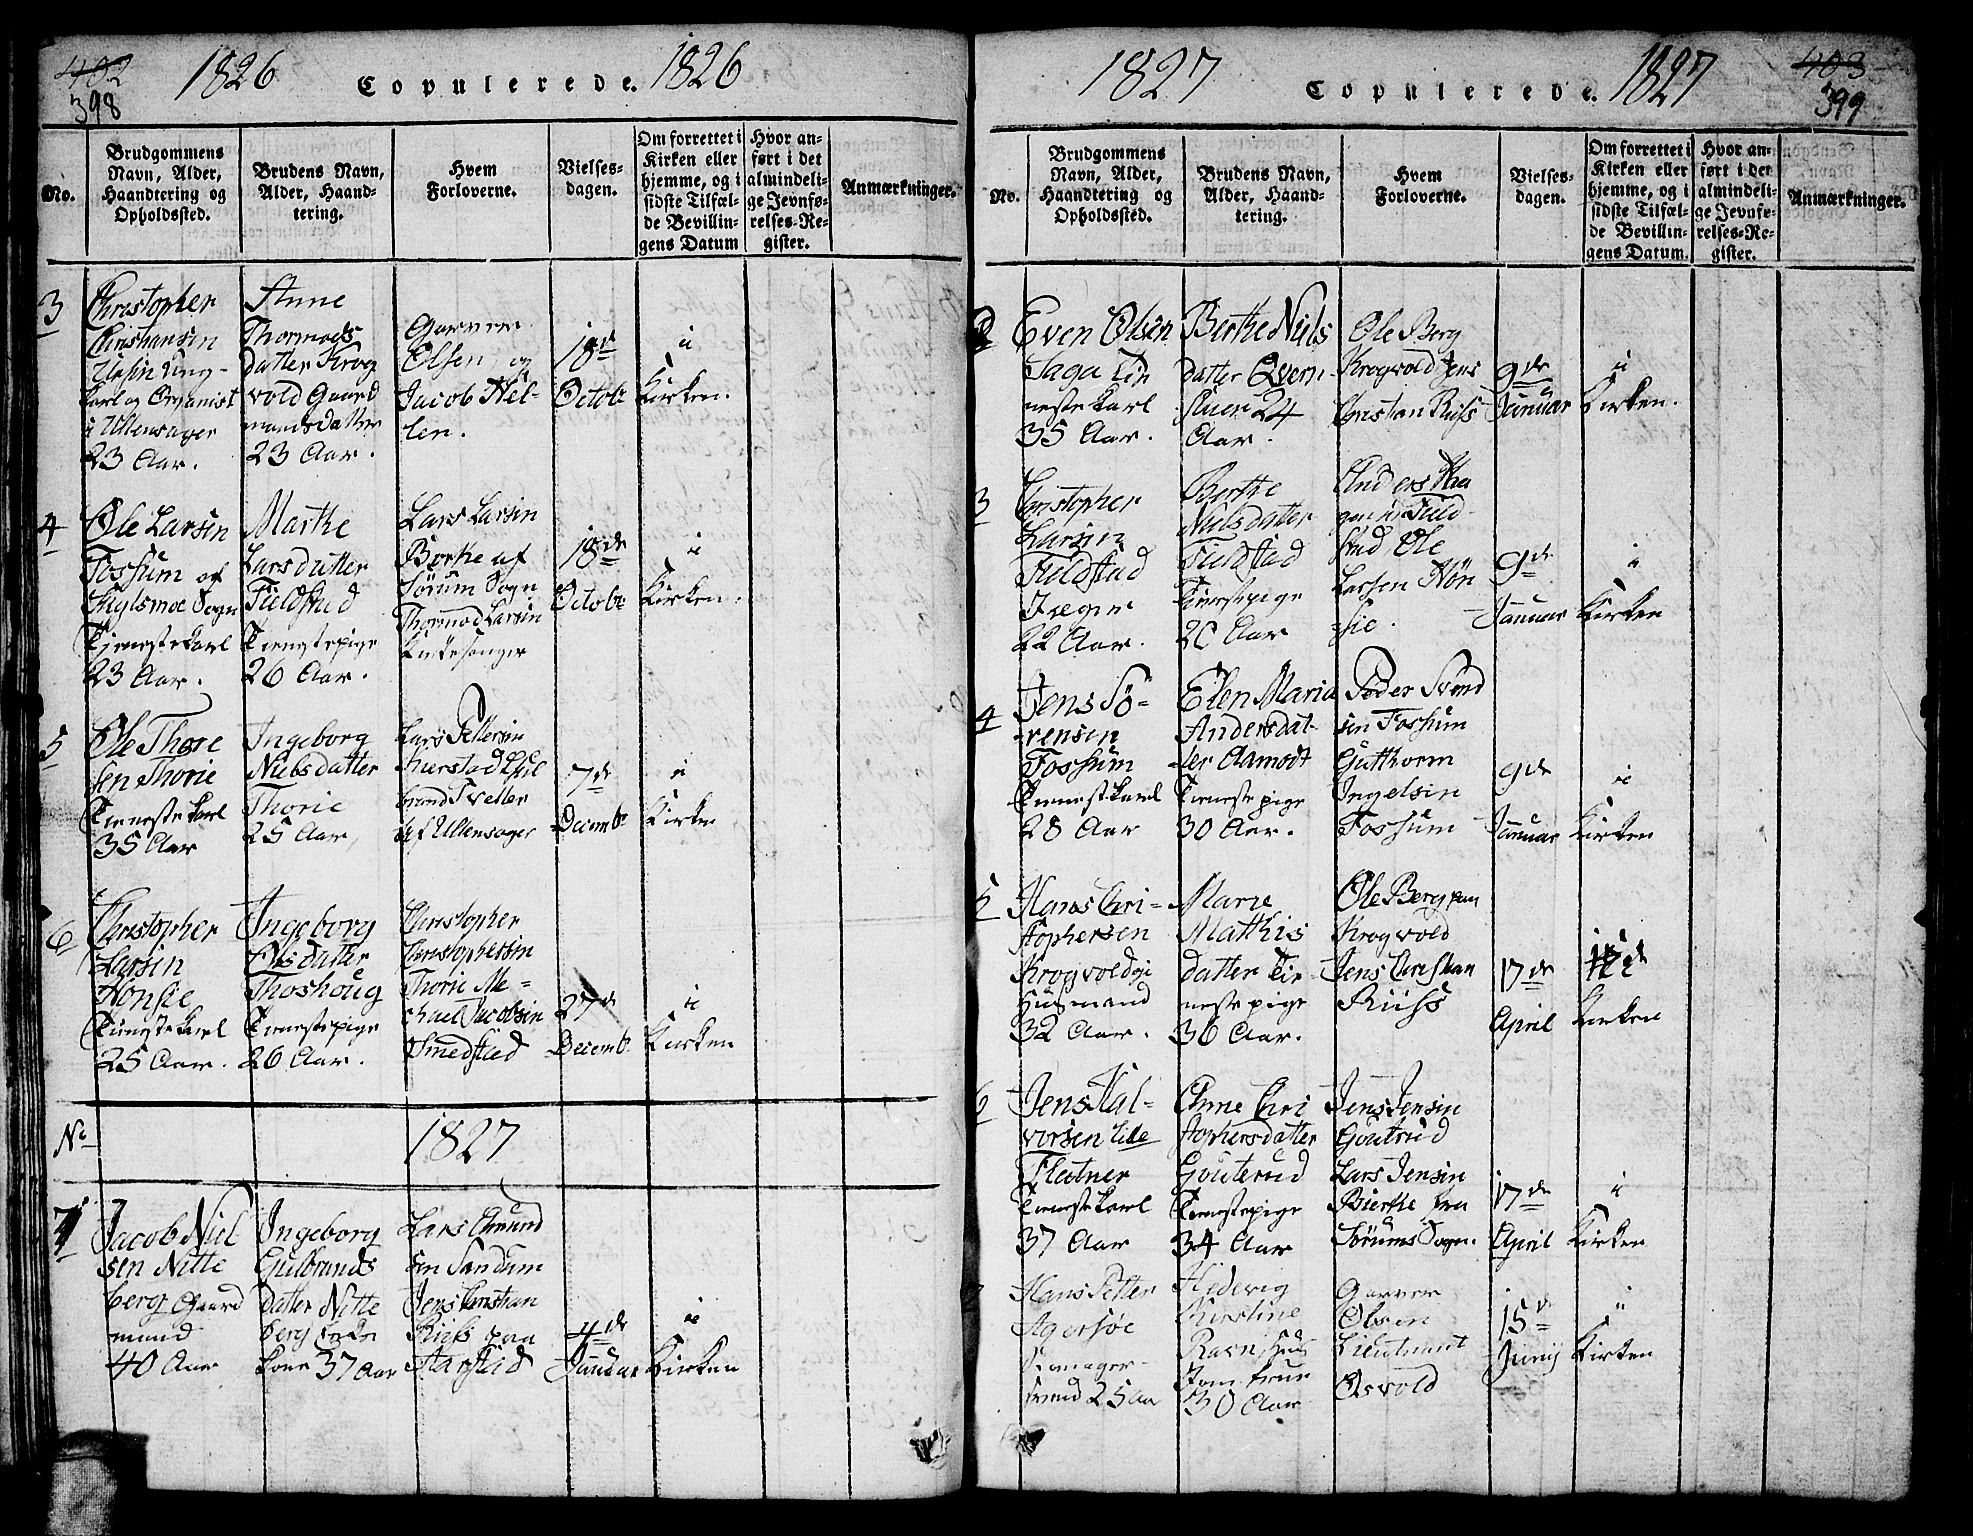 402
398
1826
Copulerede.
1826
No.
Brudgommens
Navn, Alder,
Haandtering og
Opholdssted.
Brudens Navn,
Alder, Haand-
tering.
Hvem
Forloverne.
Vielses-
dagen.
Om forrettet i
Kirken eller
hjemme, og i
sidste Tilfæl-
de Bevillin-
gens Datum
Hvor an-
ført i det
almindeli-
ge Jevnfø-
relses-Re-
gister.
Anmærkninger.
3
Christopher
Christiansen
ung-
karl og Organist
i Ullensager
23 Aar.
Anne
Thormods
datter Krog
vold Gaard
mandsdatter
23 Aar.
Garver
Elsen, og
Jacob Niel-
sen.
18de
Octobr
i
Kirken.
4
Ole Larsen
Fossum af
Sogn
Tjenestekarl
23 Aar.
Marthe
Larsdatter
Fieldstad
Tienestepige
26 Aar.
Lars Larsen
Borke af
Sørum Sogn
Thormod Larsen
Kirkesanger
18de
Octobr
i
Kirken.
5
Ole Thore
sen Thorie
Tienestekarl
35 Aar
Ingeborg
Nielsdatter
Thorie
25 Aar,
Lars Pettersen
brand Tveter
af Ullensager
7de
Decembr
i
Kirken
6
Christopher
Larsen
Honsie
Tienestekarl
25 Aar.
Ingeborg
Olsdatter
Thoshoug
Tienestepige
26 Aar.
Christopher
Christophersen
Thorie Me-
chael Jacobsen
Smedstad
27de
Decemb.
i
Kirken
No
1827
1
Jacob Niel
sen Nitte
berg Gaard
mand
40 Aar
Ingeborg
Gulbrands
datter Nitte
berg Enke
kone 37 Aar
Lars Amund
sen Sandum
Jens Christian
Riis paa
Aarstad
4de
Januar
i
Kirken
1827
Copulerede.
1827
403
399
No.
Brudgommens
Navn, Alder,
Haandtering og
Opholdssted.
Brudens Navn,
Alder, Haand-
tering.
Hvem
Forloverne.
Vielses-
dagen.
Om forrettet i
Kirken eller
hjemme, og i
sidste Tilfæl-
de Bevillin-
gens Datum.
Hvor an-
ført i det
almindeli-
ge Jevnfø-
relses-Re-
gister.
Anmærkninger.
2
Even Olsen
Saga Tie
nestekarl
35 Aar.
Berthe Niels
datter Qvern
24
Aar.
Ole Berg
Krogvold Jens
Christian Riis
9de
Januar
i
Kirken.
3
Christopher
Larsen
Fieldstad
22 Aar.
Berthe
Nielsdatter
Fieldstad
Tienestepige
20 Aar
Anders Haa
gensen Field
stad Ole
Larsen Hön
sie.
9de
Januar
i
Kirken
4
Jens Sö-
rensen
Fossum
Tienestekarl
28 Aar
Elen Maria
Andersdat-
ter Aamodt
Tienestepige
30 Aar.
Peder Svend
sen Fossum
Gutthorm
Ingelsen
Fossum
9de
Januar
i
Kirken
5
Hans Chri-
stophersen
Krogvoldeje
Husmand
32 Aar.
Marie
Mathis
datter Tie
nestepige
36 Aar.
Ole Berg paa
Krogvold
Jens Christian
Riiss
17de
April
i
Kirken
6
Jens Hal-
vorsen Lille
Flatner
Tienestekarl
37 Aar
Anne Chri
stophersdatter
Gouterud
Tienestepige
34 Aar
Jens Jensen
Goutrud
Lars Jensen
Bierke fra
Sørums Sogn.
17de
April
i
Kirken
Hans Petter
Agersöe
svend 25 Aar
Hedevig
Kirstine
Ravn, Huus
30 Aar
Garver
Olsen
Lieutenant
Osvold
15de
Junij
i
Kirken